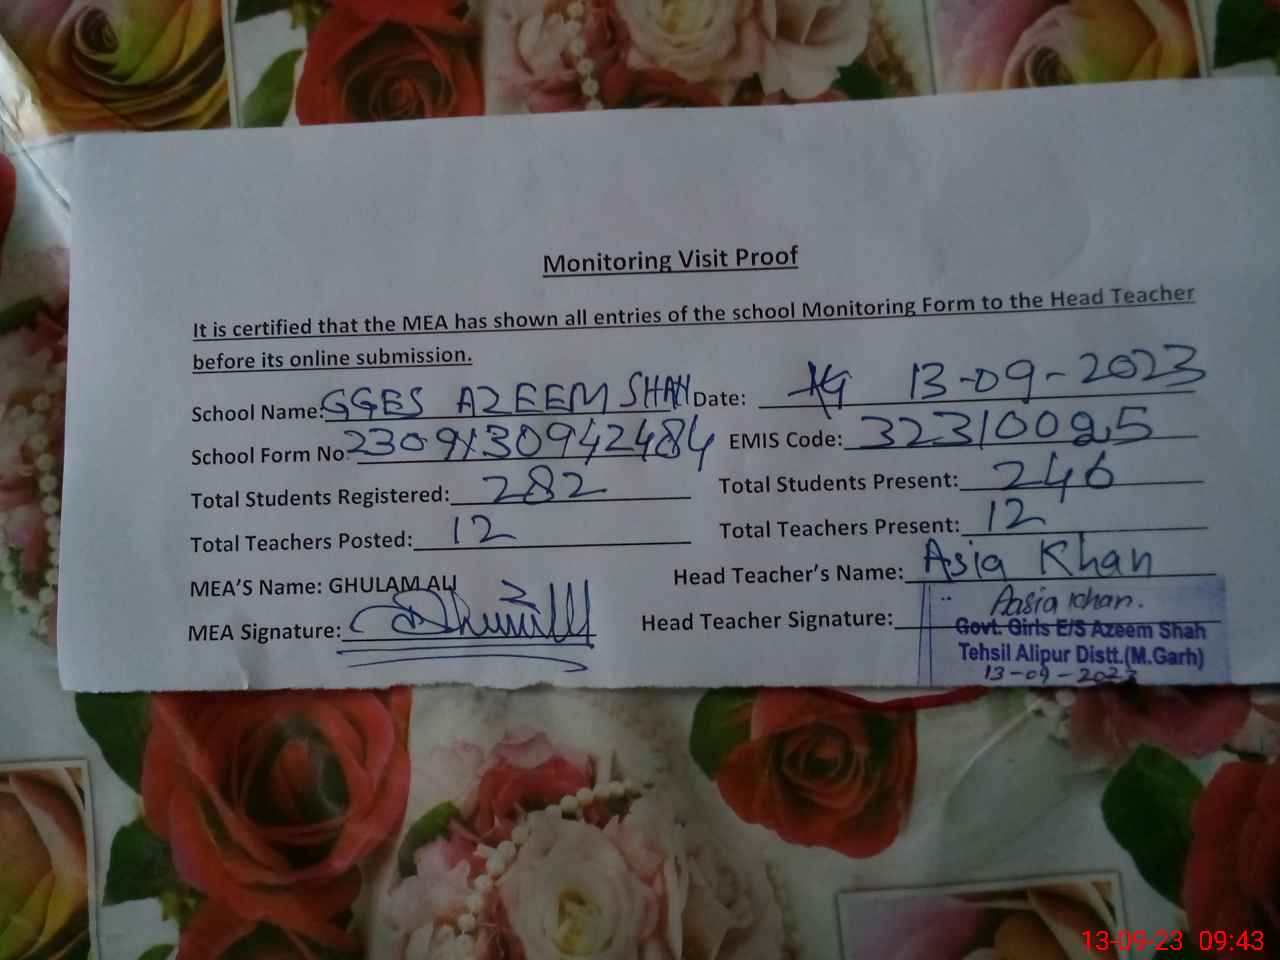 Monitoring Visit Proof
It is certified that the MEA has shown all entries of the school Monitoring Form to the Head Teacher
before its online submission.
School Name: GGES AZEEM SHAH Date: 13-09-2023
School Form No: EMIS Code: 32310025
Total Students Registered: 282 Total Students Present: 246
Total Teachers Posted: 12 Total Teachers Present: 12
MEA'S Name: GHULAM ALI Head Teacher's Name: Asia Khan
MEA Signature: Head Teacher Signature: Aasia Khan.
Govt. Girls E/S Azeem Shah
Tehsil Alipur Distt.(M.Garh)
13-09-2023
13-09-23 09:43